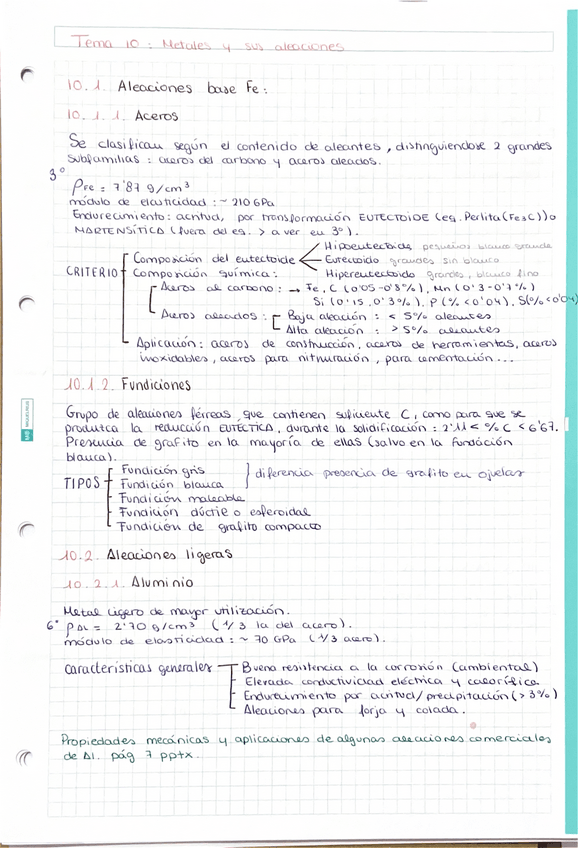 Tema 10: Metales y sus aleaciones
10.1. Aleaciones base Fe:
10.1.1. Aceros
Se clasifican según el contenido de aleantes, distinguiendose 2 grandes
subfamilias: aceros del carbono y aceros aleados.
3°
ρFe = 7'87 g/cm³
módulo de elasticidad: ~ 210 GPa
Endurecimiento: acritud, por transformación EUTECTOIDE (eg. Perlita (Fe3C)) o
MARTENSÍTICA (fuera del eg. > a ver en 3°).
CRITERIO
Composición del eutectoide
Hipoeutectoide pequeños blanco grande
Eutectoide grandes sin blanco
Hipereutectoide grandes, blanco fino
Composición química:
Aceros al carbono: → Fe, C (0'05-0'8%), Mn (0'3-0'7%)
Si (0'15, 0'3%), P (% <0'04), S(%<0'04)
Aceros aleados:
Baja aleación: < 5% aleantes
Alta aleación: > 5% aleantes
Aplicación: aceros de construcción, aceros de herramientas, aceros
inoxidables, aceros para nitruración, para cementación...
10.1.2. Fundiciones
Grupo de aleaciones férreas, que contienen suficiente C, como para que se
produzca la reducción EUTÉCTICA, durante la solidificación: 2'11 < % C < 6'67.
Presencia de grafito en la mayoría de ellas (salvo en la fundición
blanca).
TIPOS
Fundición gris
Fundición blanca
diferencia presencia de grafito en ojuelas
Fundición maleable
Fundición dúctil o esferoidal
Fundición de grafito compacto
10.2. Aleaciones ligeras
10.2.1. Aluminio
Metal ligero de mayor utilización.
6° ρAL = 2'70 g/cm³ (1/3 la del acero).
módulo de elasticidad: ~ 70 GPa (1/3 acero).
Características generales
Buena resistencia a la corrosión (ambiental)
Elevada conductividad eléctrica y calorífica.
Endurecimiento por acritud/precipitación (>3%)
Aleaciones para forja y colada.
Propiedades mecánicas y aplicaciones de algunas aleaciones comerciales
de Al. pág 7 pptx.